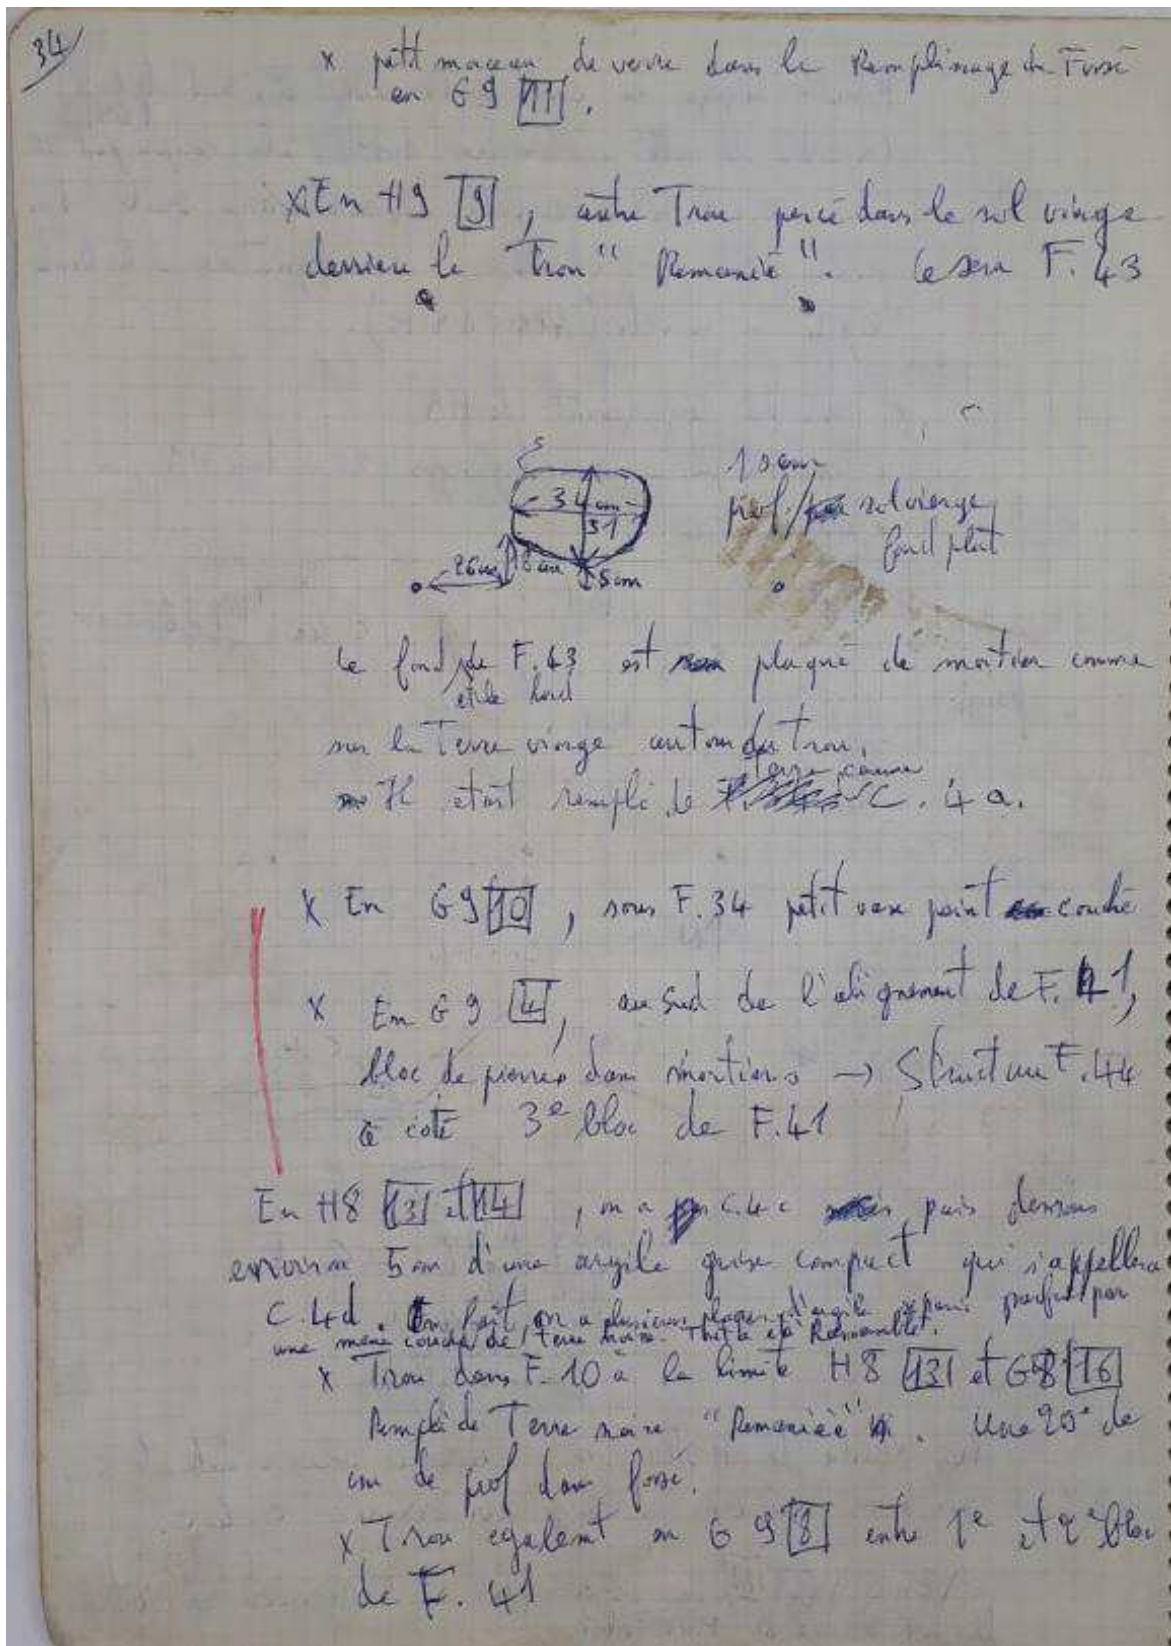 34
x petit morceau de verre dans le Remplissage du Fossé
en G9 [11].
x En H9 [9], autre Trou percé dans le sol vierge
derrière le trou "Remanié". Ce sera F. 43
34 cm
31
26 cm
18 cm
5 cm
prof./ sol vierge
fond plat
Le fond de F.43 est plaqué de mortier comme
et le bord
sur la Terre vierge autour du trou.
Il était rempli de terre comme C. 4a.
x En G9 [10], sous F.34 petit vase peint couché
x En G9 [4], au Sud de l'alignement de F. 41,
bloc de pierres dans mortiers → Structure F.44
à coté 3e bloc de F.41
En H8 [13] et [14], on a C.4c puis dessous
environ 5 cm d'une argile grise compact qui s'appellera
C.4d. En fait, on a plusieurs plaques d'argile par
une même couche de terre noire. Remanié.
x Trou dans F.10 à la limite H8 [13] et G8 [16]
Rempli de Terre noire "Remaniée". Une 20e de
cm de prof dans fossé.
x Trou egalemt en G9 [8] entre 1e et 2e bloc
de F. 41